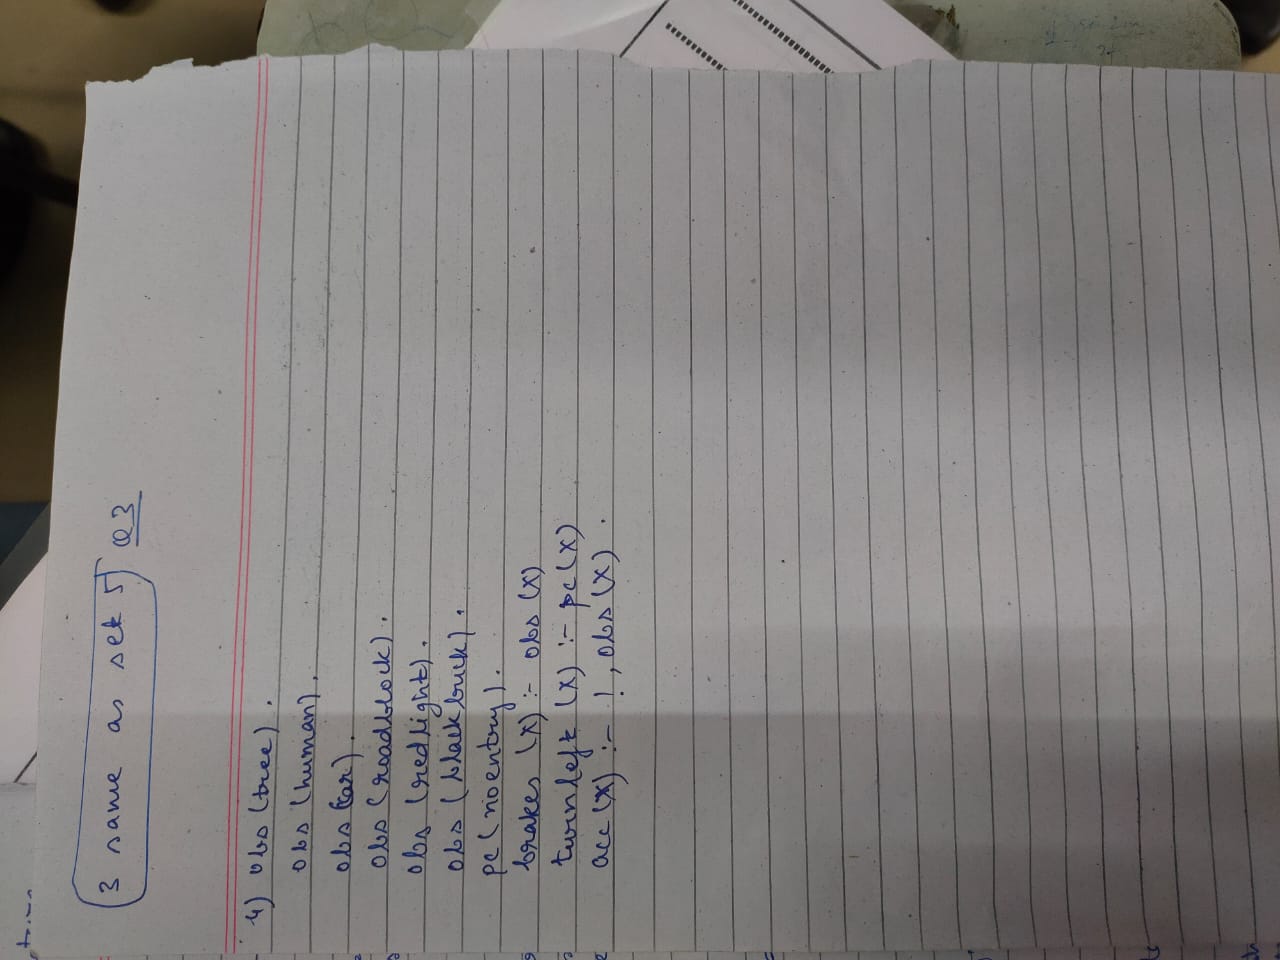 3 same as set 5 Q3
4) obs (tree).
obs (human).
obs (car).
obs (roadblock).
obs (redlight).
obs (blackbuck).
pc (noentry).
brakes (X) :- obs (X)
turnleft (X) :- pc (X)
acc (X) :- !, obs (X).